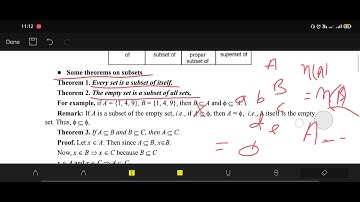 11:12
Done
of
subset of
proper subset of
superset of
• Some theorems on subsets
Theorem 1. Every set is a subset of itself.
Theorem 2. The empty set is a subset of all sets,
For example, if A = {1, 4, 9}, B = {1, 4, 9}, then B ⊆ A and ϕ ⊂
Remark: If A is a subset of the empty set, i.e., if A ⊆ ϕ, then A = ϕ, i.e., A itself is the empty
set. Thus, ϕ ⊆ ϕ.
Theorem 3. If A ⊆ B and B ⊆ C, then A ⊂ C.
Proof. Let x ∈ A. Then since A ⊆ B, x∈B.
Now, x ∈ B ⇒ x ∈ C because B ⊆ C
A
n(A)
a b B
= n(B)
d e c
A
= ϕ